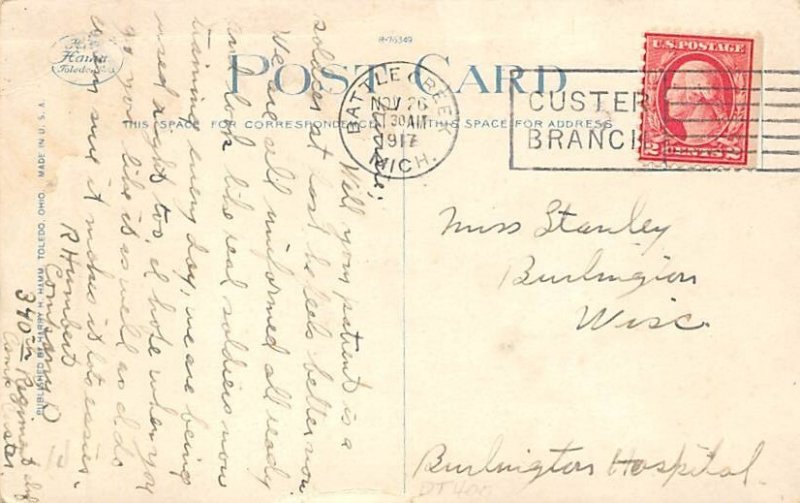 R-76349
POST CARD
THIS SPACE FOR CORRESPONDENCE
THIS SPACE FOR ADDRESS
BATTLE CREEK
NOV 26
11 30 AM
1917
MICH.
CUSTER
BRANCH
U.S. POSTAGE
2 CENTS 2
Hamm
Toledo
PUBLISHED BY HARRY H. HAMM, TOLEDO, OHIO. MADE IN U.S.A.
Well your patient is a
soldier at last he feels better now
We are all uniformed all ready
and look like real soldiers now
training every day, we are being
used alright too, I hope when you
go you like it as well as I do
sure it makes it lots easier.
R Humbert
Company D
340 th Regiment Inf
Camp Custer
Miss Stanley
Burlington
Wisc.
Burlington Hospital.